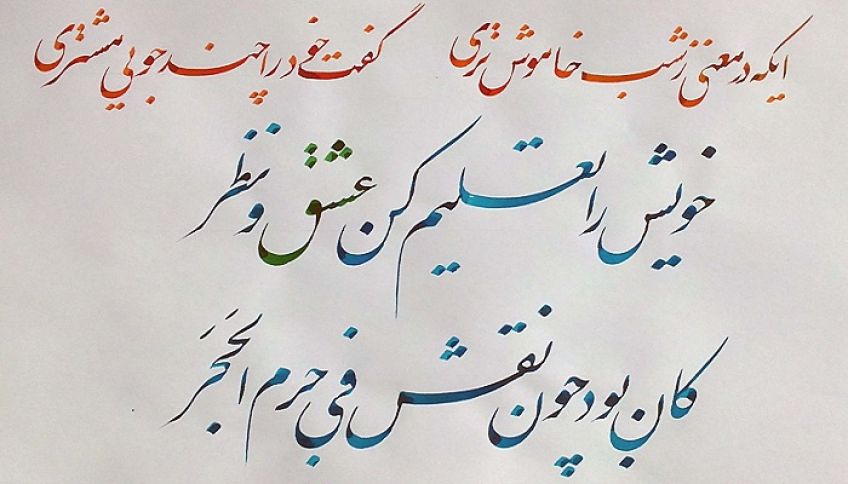 ایکه در معنی ز شب خاموش‌تری گفت خود را چند جویی مشتری
خویش را تعلیم کن عشق و نظر
کان بود چون نقش فی جرم الحَجَر